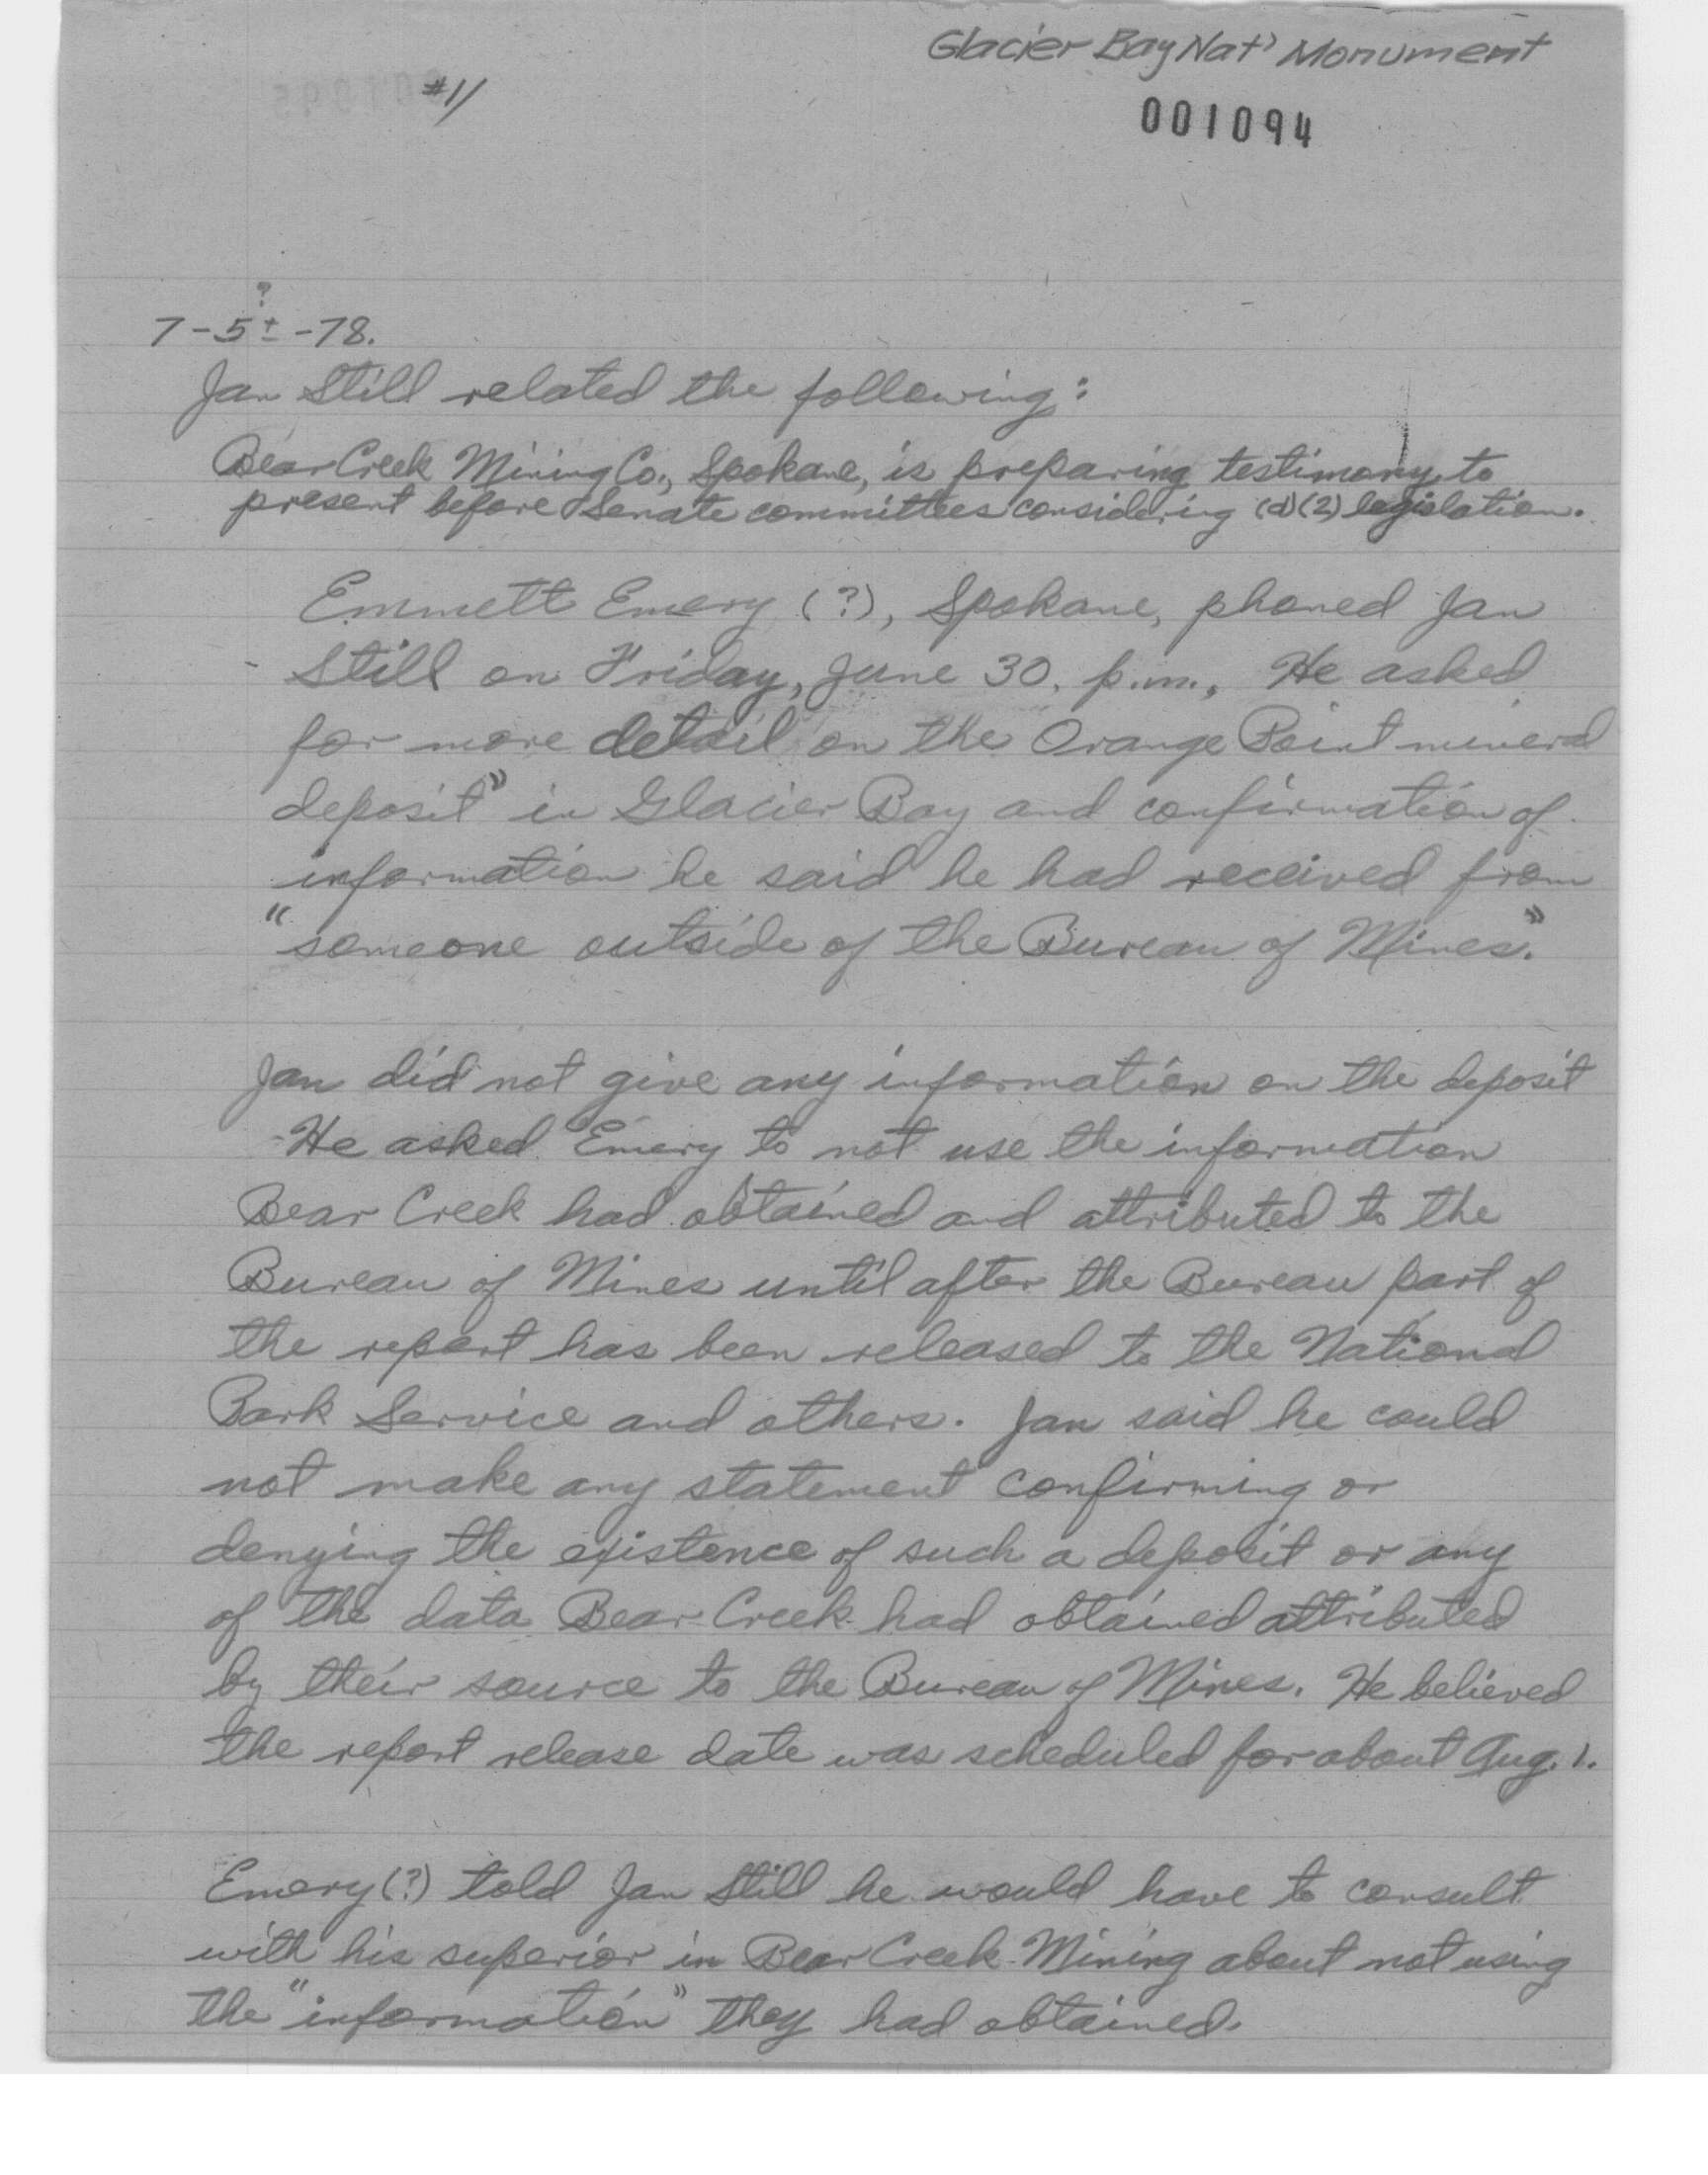 Glacier Bay Nat' Monument
#11
001094
?
7-5±-78.
Jan Still related the following:
Bear Creek Mining Co., Spokane, is preparing testimony to
present before Senate committees considering (d)(2) legislation.
Emmett Emery (?), Spokane, phoned Jan
Still on Friday, June 30, p.m., He asked
for more detail on the Orange Point mineral
deposit" in Glacier Bay and confirmation of
information he said he had received from
"someone outside of the Bureau of Mines."
Jan did not give any information on the deposit
-He asked Emery to not use the information
Bear Creek had obtained and attributed to the
Bureau of Mines until after the Bureau part of
the report has been released to the National
Park Service and others. Jan said he could
not make any statement confirming or
denying the existence of such a deposit or any
of the data Bear Creek had obtained attributed
by their source to the Bureau of Mines. He believed
the report release date was scheduled for about Aug. 1.
Emery(?) told Jan Still he would have to consult
with his superior in Bear Creek Mining about not using
the "information" they had obtained.